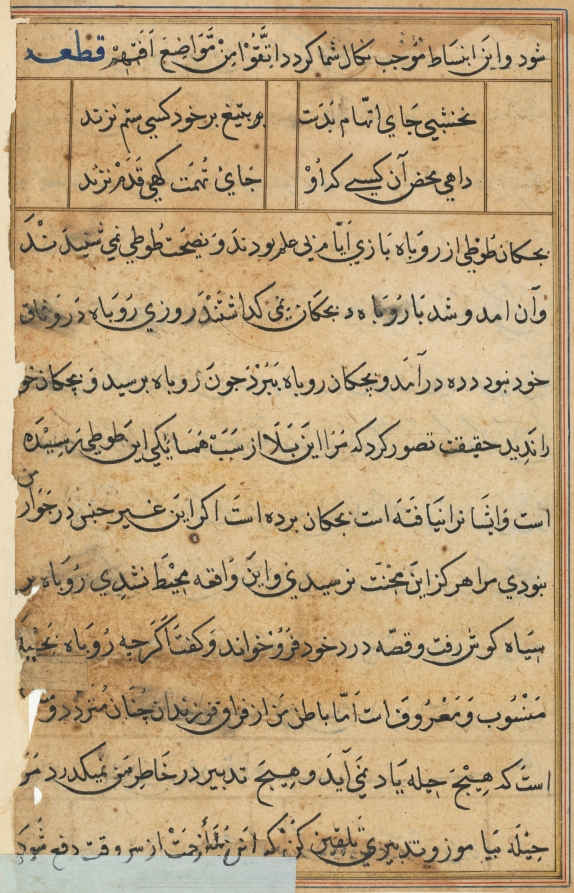 شود و این انبساط موجب نکال شما کردد اتقوا من مواضع التهم قطعه
نخشبی جای اتهام بدست بر بتیغ بر خود کسی ستم نزند
داهی محض آن کسی که او جای تهمت کهی قدم نزند
بچکان طوطی از روباه بازی ایام بی علم بودند و نصیحت طوطی نمی شنیدند
و آن امد و شد با روباه بچکان نمی کداشتند روزی روباه در وثاق
خود نبود دده درآمد و بچکان روباه ببرد چون روباه برسید و بچکان خو
را ندید حقیقت تصور کرد که مرا این بلا از سبب همسایکی این طوطی رسیده
است و ایشانرا نیافته است بچکان برده است اکر این غیر جنس در جوار من
نبودی مرا هرکز این محنت نرسیدی و این واقعه محیط نشدی روباه بر
سیاه کوش رفت و قصه درد خود فرو خواند و کفت اکرچه روباه بحیله
منسوب و معروف است اما باطن من از فراق فرزندان چنان متردد و
است که هیچ حیله یاد نمی آید و هیچ تدبیر در خاطر من نمیکدرد مر
حیله بیا موز و تدبیری تلقین کن که این زحمت از سر وقت دفع شود